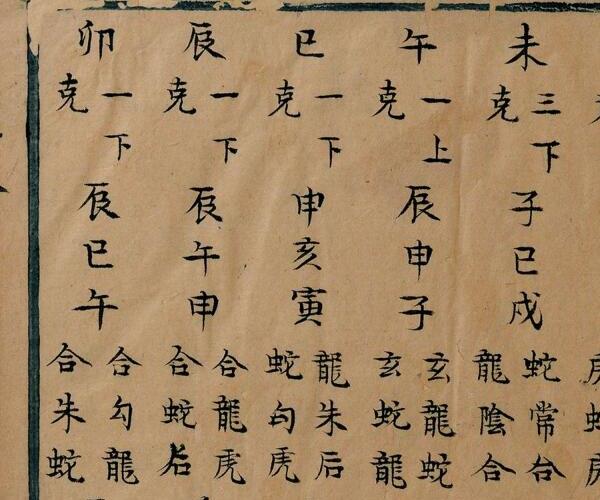 未三下克子巳戌蛇常合龍陰合
午一上克辰申子玄龍蛇玄蛇龍
巳一下克申亥寅龍朱后蛇勾虎
辰一下克辰午申合龍虎合蛇后
卯一下克辰巳午合勾龍合朱蛇